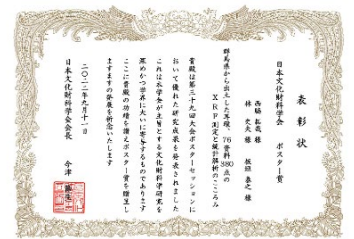 表彰状
日本文化財科学会 ポスター賞
林 史夫 様
群馬県から出土した耳環、76資料380点の
XRF測定と統計解析のこころみ
貴殿は第三十九回大会ポスターセッションに
おいて優れた研究成果を発表されました
これは本学会が主旨とする文化財科学研究を
深めかつ世界に大いに寄与するものであります
ここに貴殿の功績を讃えポスター賞を贈呈し
ますますの発展を祈念いたします
二〇二二年九月十一日
日本文化財科学会会長 今津